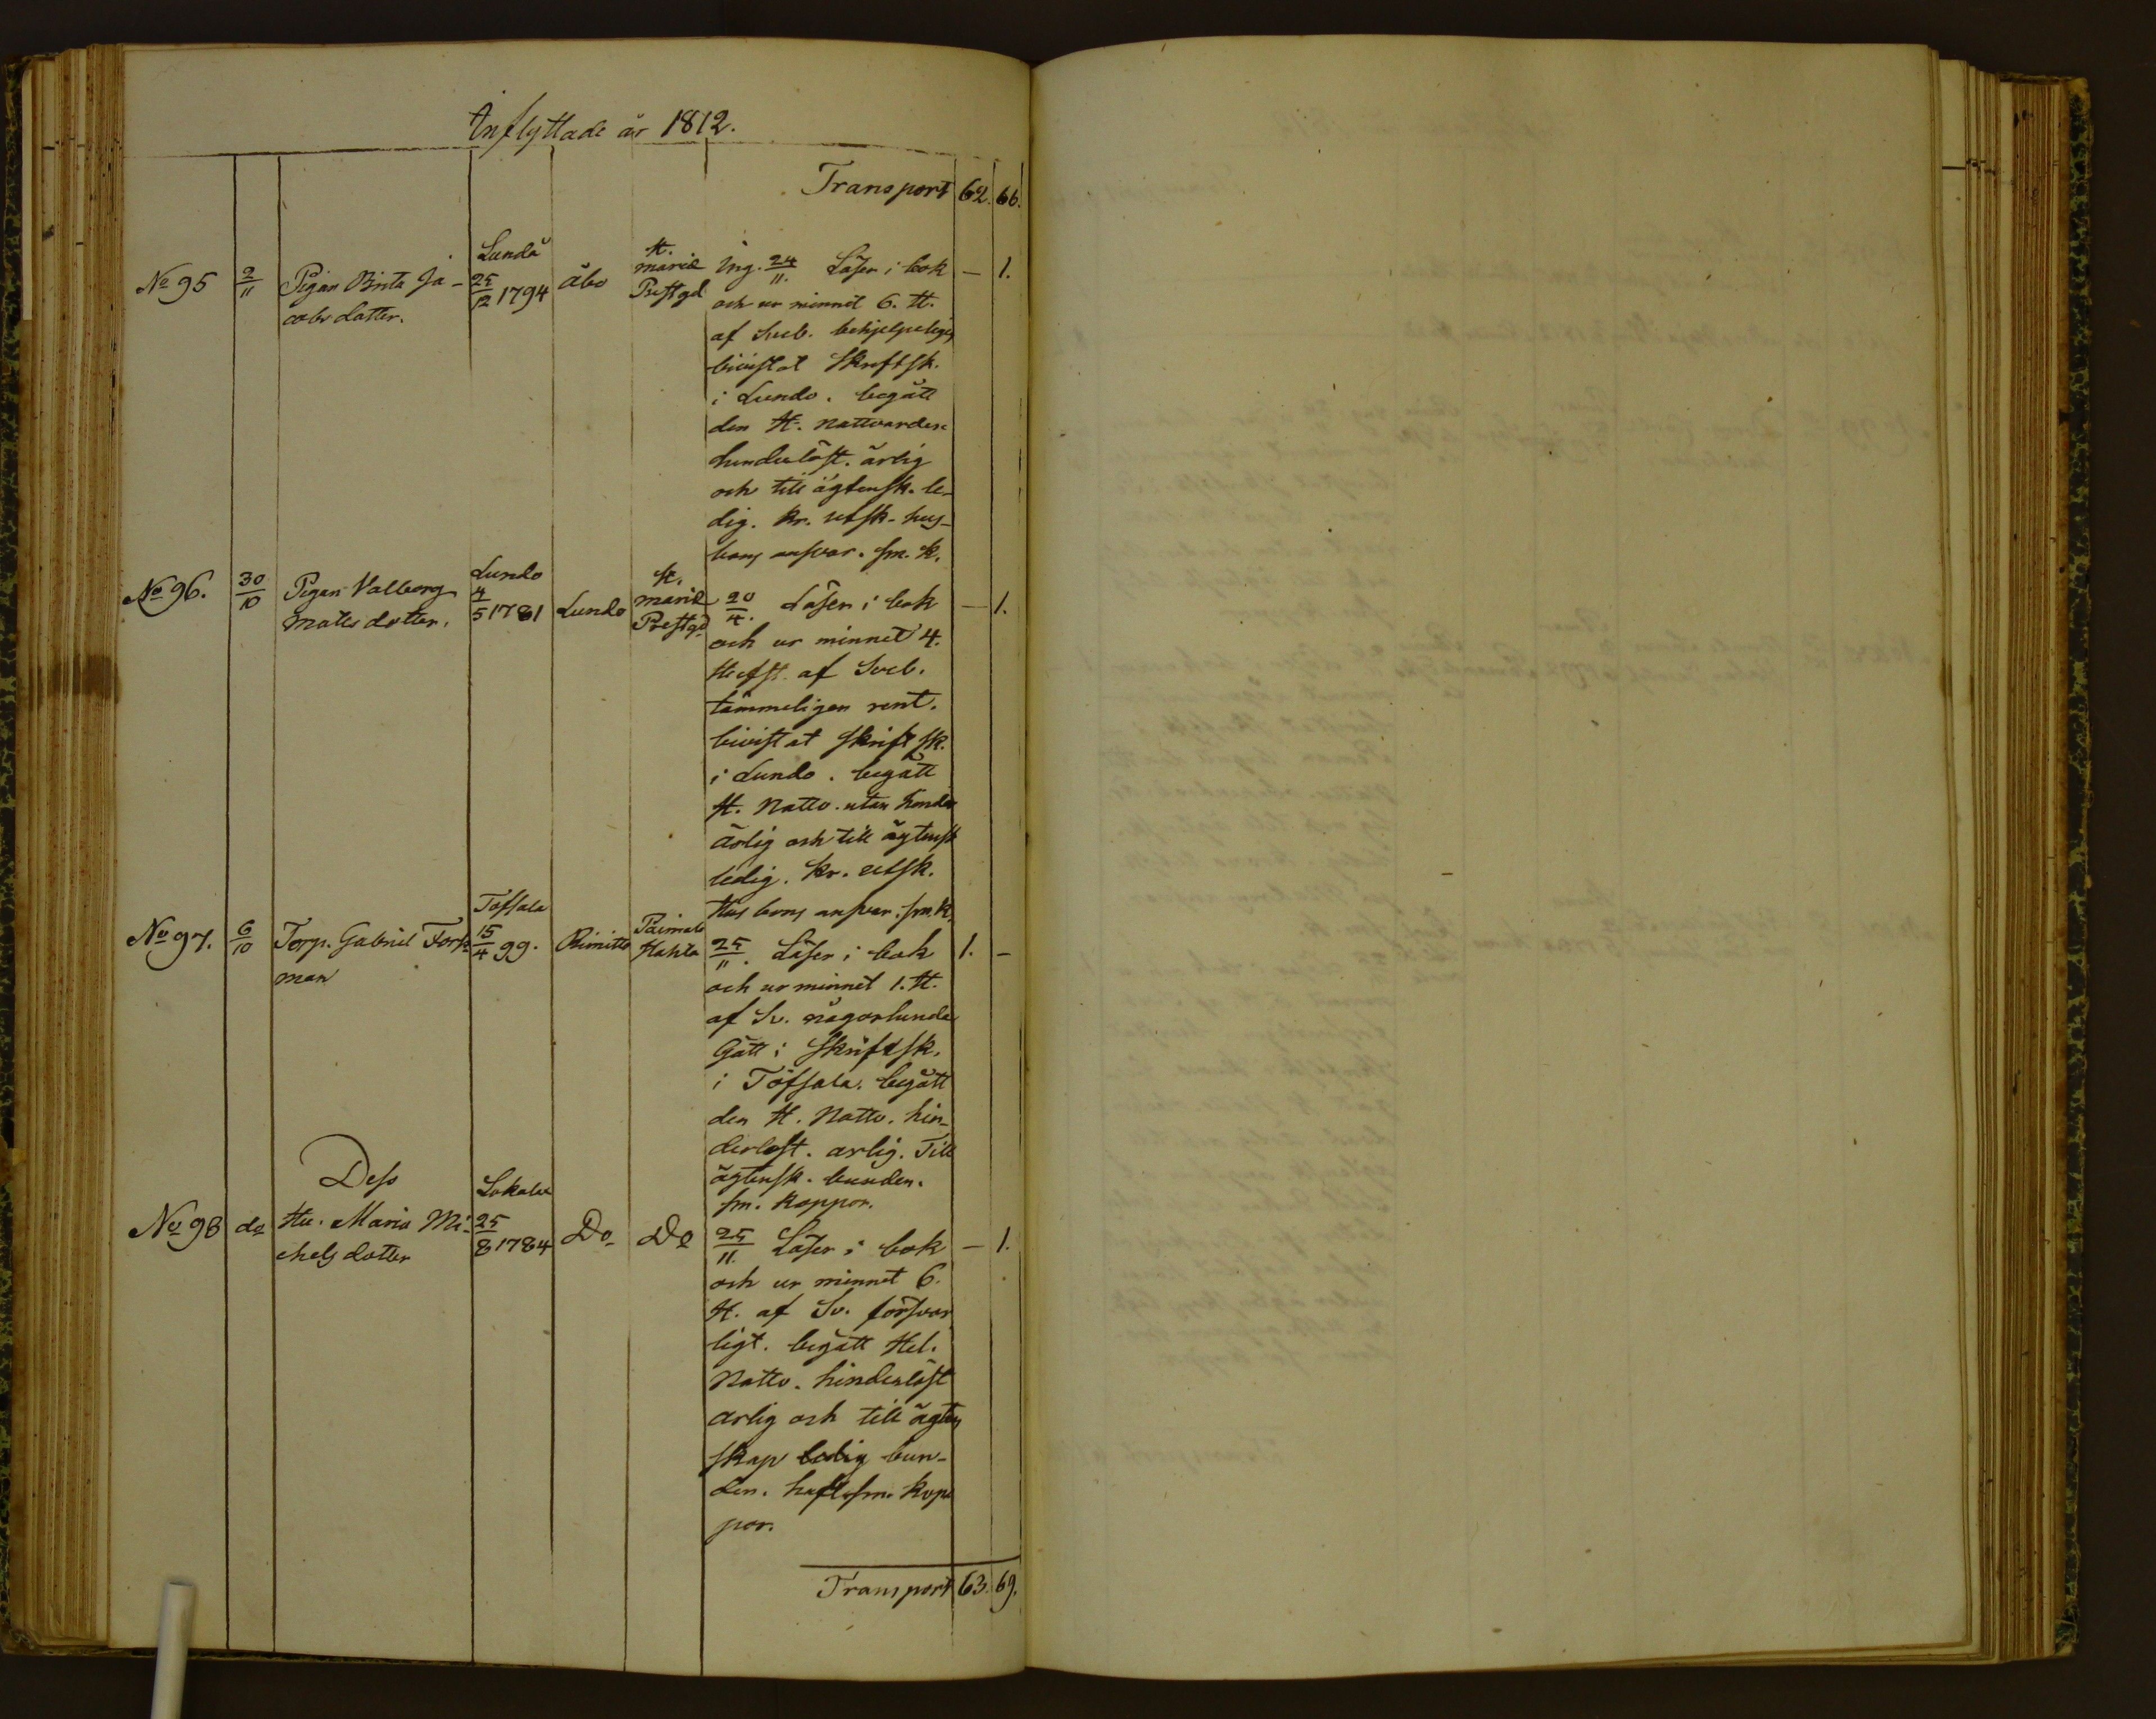 Inflyttade år 1812.
Transport 62. 66.
No 95 2/11 Pigan Brita Ja-
cobs dotter.
Lundå
25/12 1794
Åbo
St.
Mariæ
Prestgd
Ing. 24/11. Läser i bok — 1.
och ur minnet 6. H.
af Sveb. behjelpeligen
bivistat Skriftsk.
i Lundo. begått
den H. Nattvarden
hinderlöst. ärlig
och till ägtensk. le-
dig. Kr. utsk. hus-
bons ansvar. sm. K.
No 96. 30/10 Pigan Valborg
Matts dotter.
Lundo
4/5 1781
Lundo
St.
Mariæ
Prestgd
20/4. Läser i bok — 1.
och ur minnet 4.
Hufst. af Sveb.
tämmeligen rent.
bivistat Skriftsk.
i Lundo. begått
H. Nattv. utan hinder
ärlig och till ägtensk
ledig. Kr. utsk.
Husbons ansvar. sm. K.
No 97. 6/10 Torp. Gabriel Fors-
man
Töfsala
15/4 99.
Rimitto
Paimala
Hahla
25/11. Läser i bok 1. —
och ur minnet 1. H.
af Sv. någorlunda
Gått i Skriftsk.
i Töfsala. begått
den H. Nattv. hin-
derlöst. ärlig. Till
ägtensk. bunden.
sm. Koppor.
No 98 do
Dess
Hu. Maria Mi-
chels dotter
Lokalax
25/8 1784
Do
Do
25/11. Läser i bok — 1.
och ur minnet 6.
H. af Sv. försvar
ligt. begått Hel.
Nattv. hinderlöst
ärlig och till ägten
skap ledig bun-
den. haft sm. Kop
por.
Transport 63. 69.